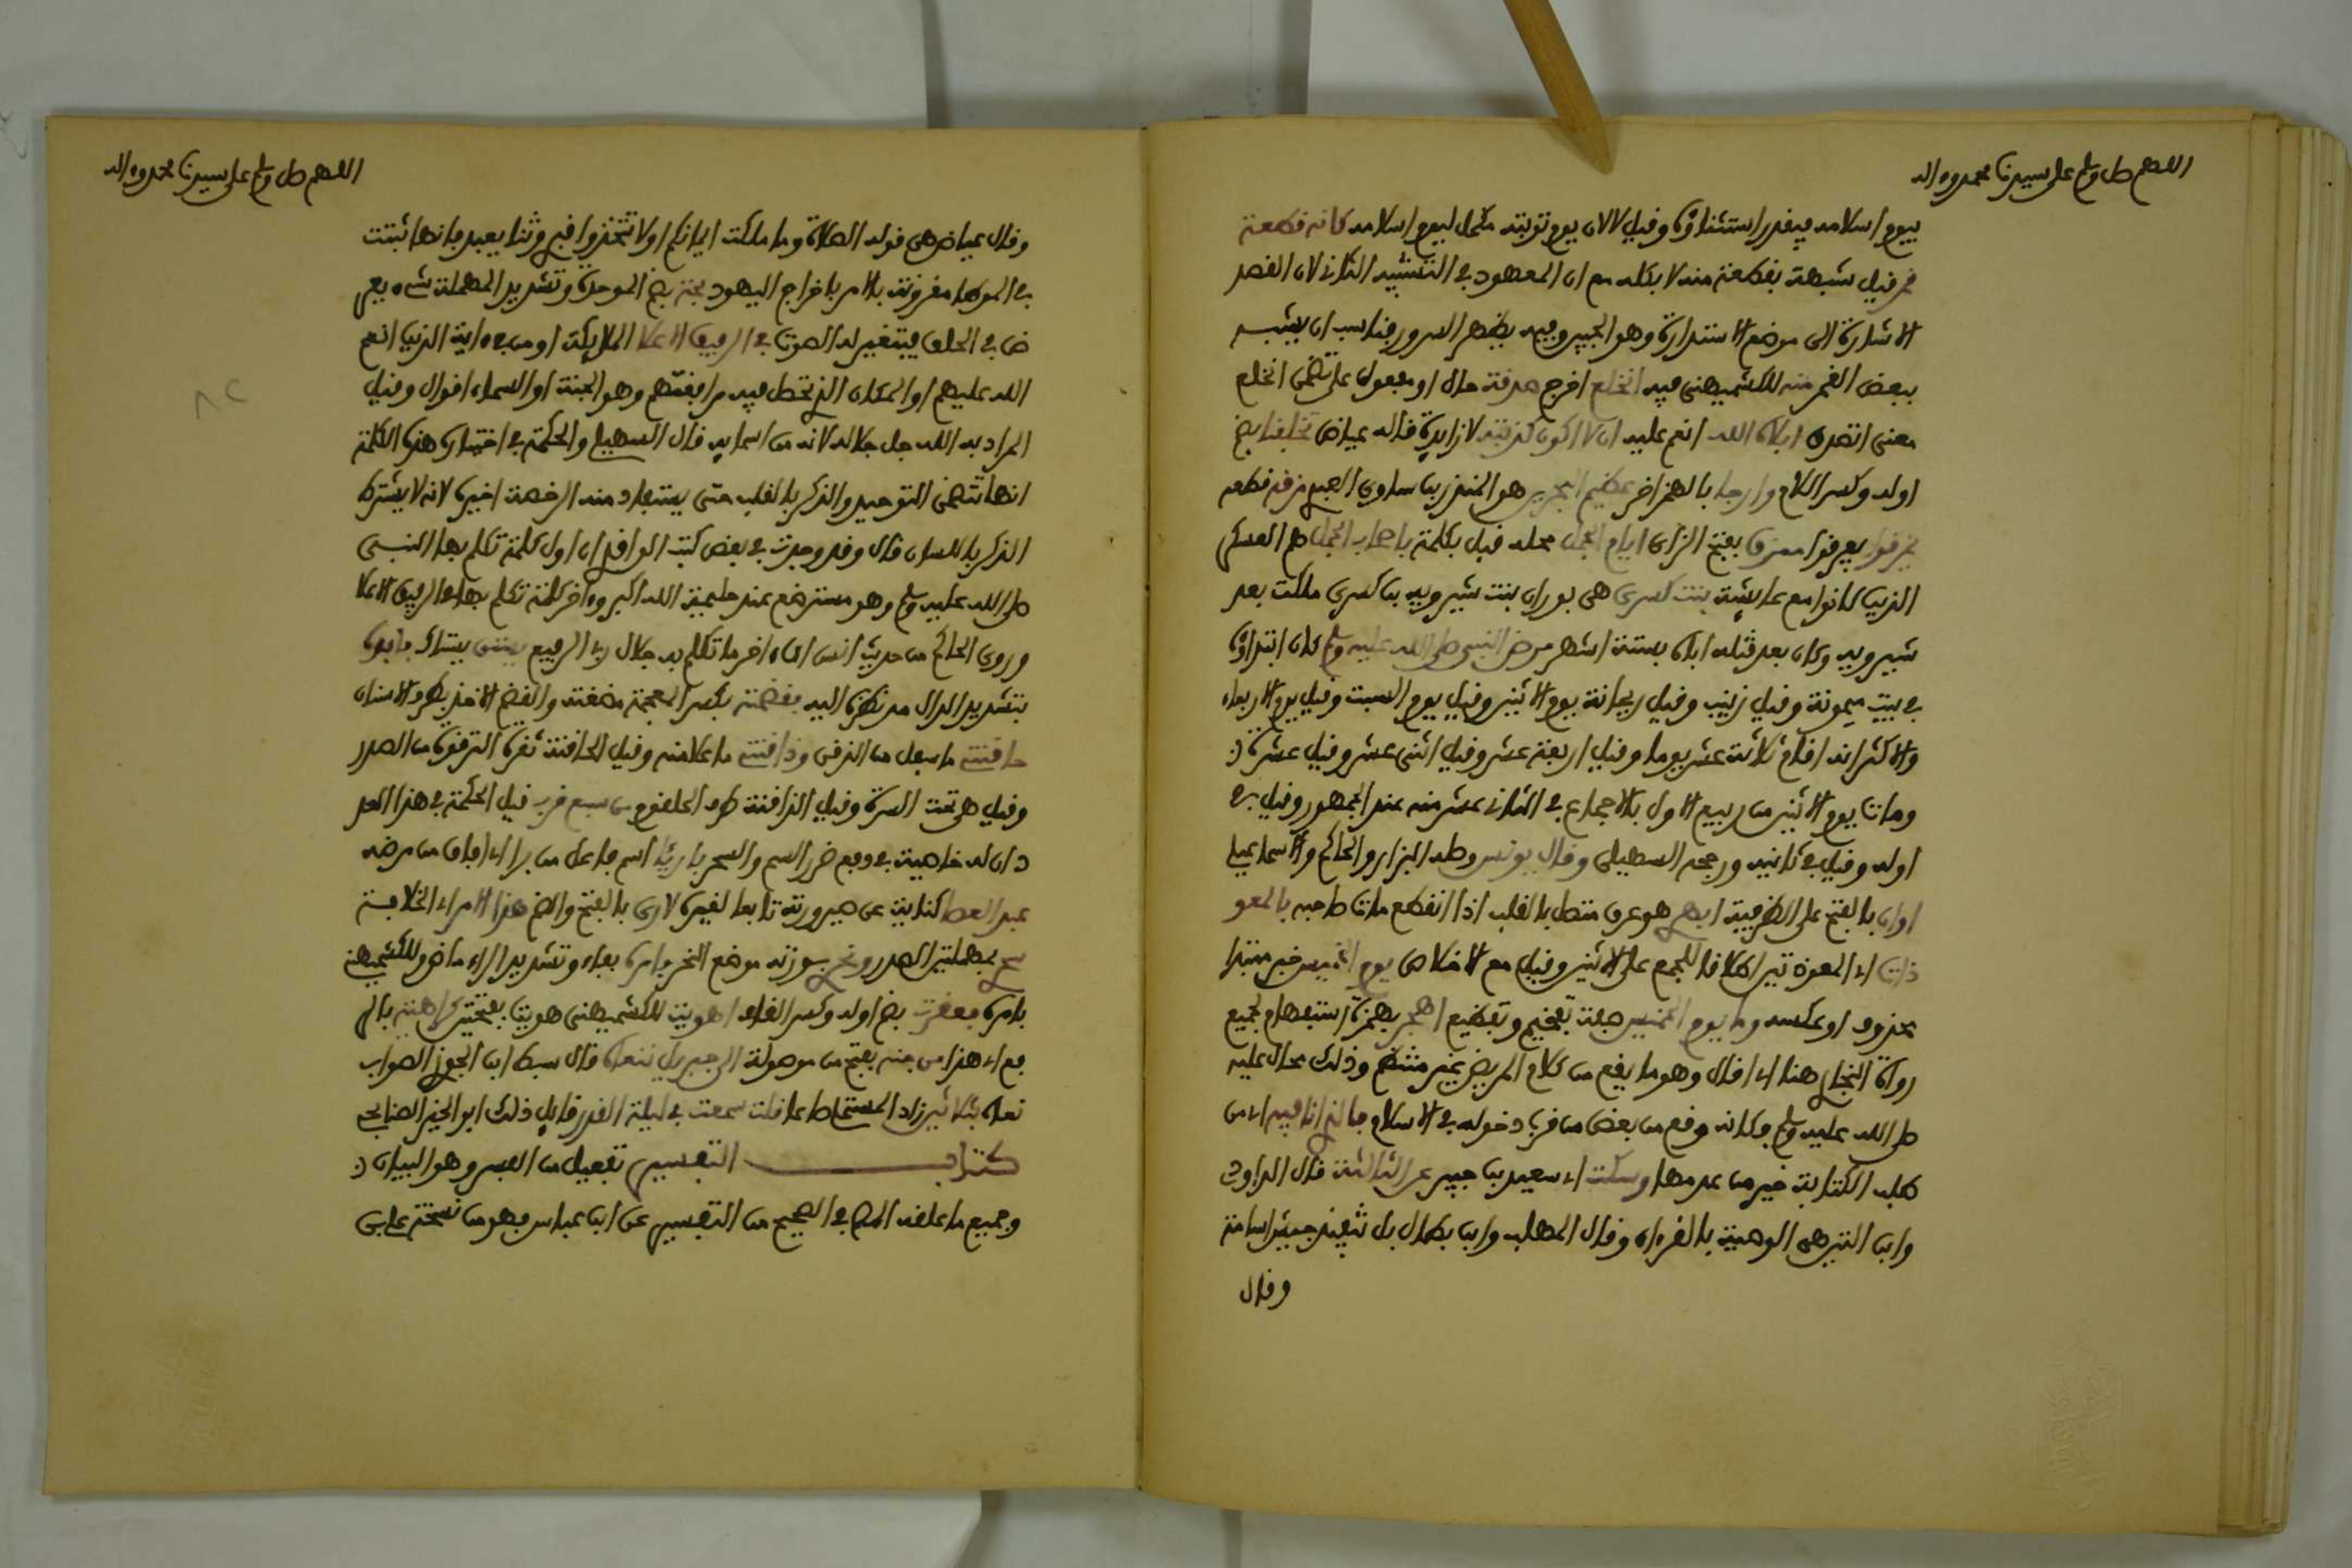 اللهم صل وسلم على سيدنا محمد وءاله
بيوم اسلامه فيقدر استثناؤه وقيل لان يوم توبته مكمل ليوم اسلامه كانه قطعة
قمر قيل شبهه بقطعة منه لا بكله مع ان المعهود في التشبيه الثاني لان القصد
الاشارة الى موضع الاستدارة وهو الجبين وفيه يظهر السرور فناسب ان يشبه
ببعض القمر منه للكشميهني فيه انخلع اخرج صدقة حال او مفعول على تضمن انخلع
معنى اتصدق ابلاه الله انعم عليه ان لا اكون كذبته لا زايدة قاله عياض تخلفنا بضم
اوله وكسر اللام وارجا بالهمز اخر عظيم البحرين هو المنذر بن ساوى العبدي مزقه قطعه
يمزقوا يفرقوا ممزق بفتح الزاي ايام الجمل محله قبل بكلمة باصحاب الجمل هم العسكر
الذين كانوا مع عايشة بنت كسرى هي بوران بنت شيرويه بن كسرى ملكت بعد
شيرويه وكان بعد قتله اباه بستة اشهر مرض النبي صلى الله عليه وسلم كان ابتداؤه
في بيت ميمونة وقيل زينب وقيل ريحانة يوم الاثنين وقيل يوم السبت وقيل يوم الاربعاء
والاكثر انه اقام ثلاثة عشر يوما وقيل اربعة عشر وقيل اثنى عشر وقيل عشرة
ومات يوم الاثنين من ربيع الاول بالاجماع في الثاني عشر منه عند الجمهور وقيل في
اوله وقيل في ثانيه ورجحه السهيلي وقال يونس وصله البزار والحاكم والاسماعيلي
اوان بالفتح على الظرفية ابهري هو عرق متصل بالقلب اذا انقطع مات صاحبه بالمعو
ذات اي المعوذتين اطلاقا للجمع على الاثنين وقيل مع الاخلاص يوم الخميس خبر مبتدا
محذوف او عكسه وما يوم الخميس صفة تفخيم وتفظيع اهجر بهمزة استفهام لجميع
رواة البخاري هنا اي اقال وهو ما يقع من كلام المريض غير منتظم وذلك محال عليه
صلى الله عليه وسلم وكانه وقع من بعض من قرب دخوله في الاسلام فالذي انا فيه اي من
طلب الكتابة خير من عدمها وسكت اي سعيد بن جبير عن الثالثة قال الداودي
وابن التين هي الوصية بالقرءان وقال المهلب وابن بطال بل تنفيذ جيش اسامة
وقال
اللهم صل وسلم على سيدنا محمد وءاله
وقال عياض هي قوله الصلاة وما ملكت ايمانكم او لا تتخذوا قبري وثنا يعبد فانها ثبتت
في الموطا مقرونة بالامر باخراج اليهود بحة بضم الموحدة وتشديد المهملة شيء يعر
ض في الحلق فيتغير له الصوت في الرفيق الاعلا الملايكة او من في ءاية الذين انعم
الله عليهم او المكان الذي تحصل فيه مرافقتهم وهو الجنة او السماء اقوال وقيل
المراد به الله جل جلاله لانه من اسمايه قال السهيلي والحكمة في اختيار هذه الكلمة
انها تتضمن التوحيد والذكر بالقلب حتى يستفاد منه الرخصة لغيره لانه لا يشترط
الذكر باللسان قال وقد وجدت في بعض كتب الواقدي ان اول كلمة تكلم بها النبي
صلى الله عليه وسلم وهو مسترضع عند حليمة الله اكبر وءاخر كلمة تكلم بها في الرفيق الاعلا
وروى الحاكم من حديث انس ان ءاخر ما تكلم به جلال ربي الرفيع يستن يستاك فابده
بتشديد الدال مد نظره اليه فقضمته بكسر المعجمة مضغته والقضم الاخذ بطرف الاسنان
حاقنتي ما سفل من الذقن وذاقنتي ما علا منه وقيل الحاقنة نقرة الترقوة من الصدر
وقيل هي تحت السرة وقيل الذاقنة طرف الحلقوم من سبع قرب قيل الحكمة في هذا العد
د ان له خاصية في دفع ضرر السم والسحر باريا اسم فاعل من برا اي افاق من مرضه
عبد العصا كناية عن صيرورته تابعا لغيره لارى بالفتح والضم هذا الامر اي الخلافة
سحري بمهملتين الصدر ونحري بوزنه موضع النحر فامره بفاء وتشديد الراء ماض وللكشميهني
بامره فعقرت بضم اوله وكسر القاف اهويت للكشميهني هويت بفتحتين كراهية بالر
فع اي هذا من جنة بفتح من موصولة الى جبريل ننعاه قال سبط ابن الجوزي الصواب
نعاه بثلاثي زاد المستخاصا قلت سمعت في ليلة القدر قايل ذلك ابو الخير الصنابحي
كتاب التفسير تفعيل من الفسر وهو البيان
وجميع ما علقه المص في الصحيح من التفسير عن ابن عباس فهو من نسخة علي بن